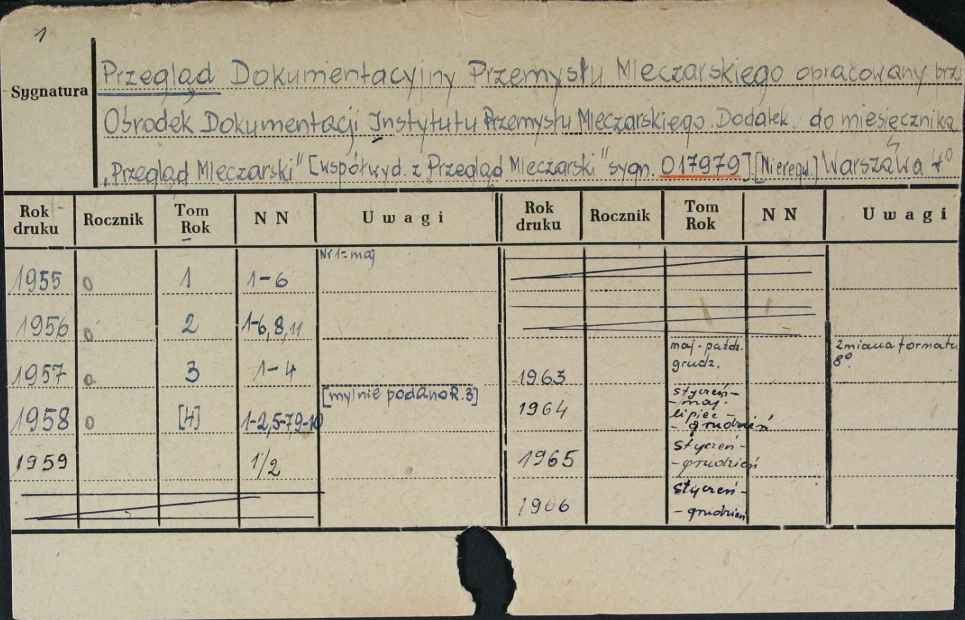 1
Sygnatura
Przegląd Dokumentacyjny Przemysłu Mleczarskiego opracowany prze
Ośrodek Dokumentacji Instytutu Przemysłu Mleczarskiego. Dodatek do miesięcznika
„Przegląd Mleczarski" [współwyd. z Przegląd Mleczarski" sygn. 017979] [Nieregul.] Warszawa 4°
Rok druku Rocznik Tom Rok NN Uwagi Rok druku Rocznik Tom Rok NN Uwagi
1955 0 1 1-6 Nr 1 = maj
1956 0 2 1-6,8,11
1957 0 3 1-4 1963 maj-paźdz. grudz. Zmiana formatu 8°
1958 0 [4] 1-2,5-7,9-10 [mylnie podano R.3] 1964 styczeń-maj. lipiec-grudzień
1959 1/2 1965 styczeń-grudzień
1966 styczeń-grudzień